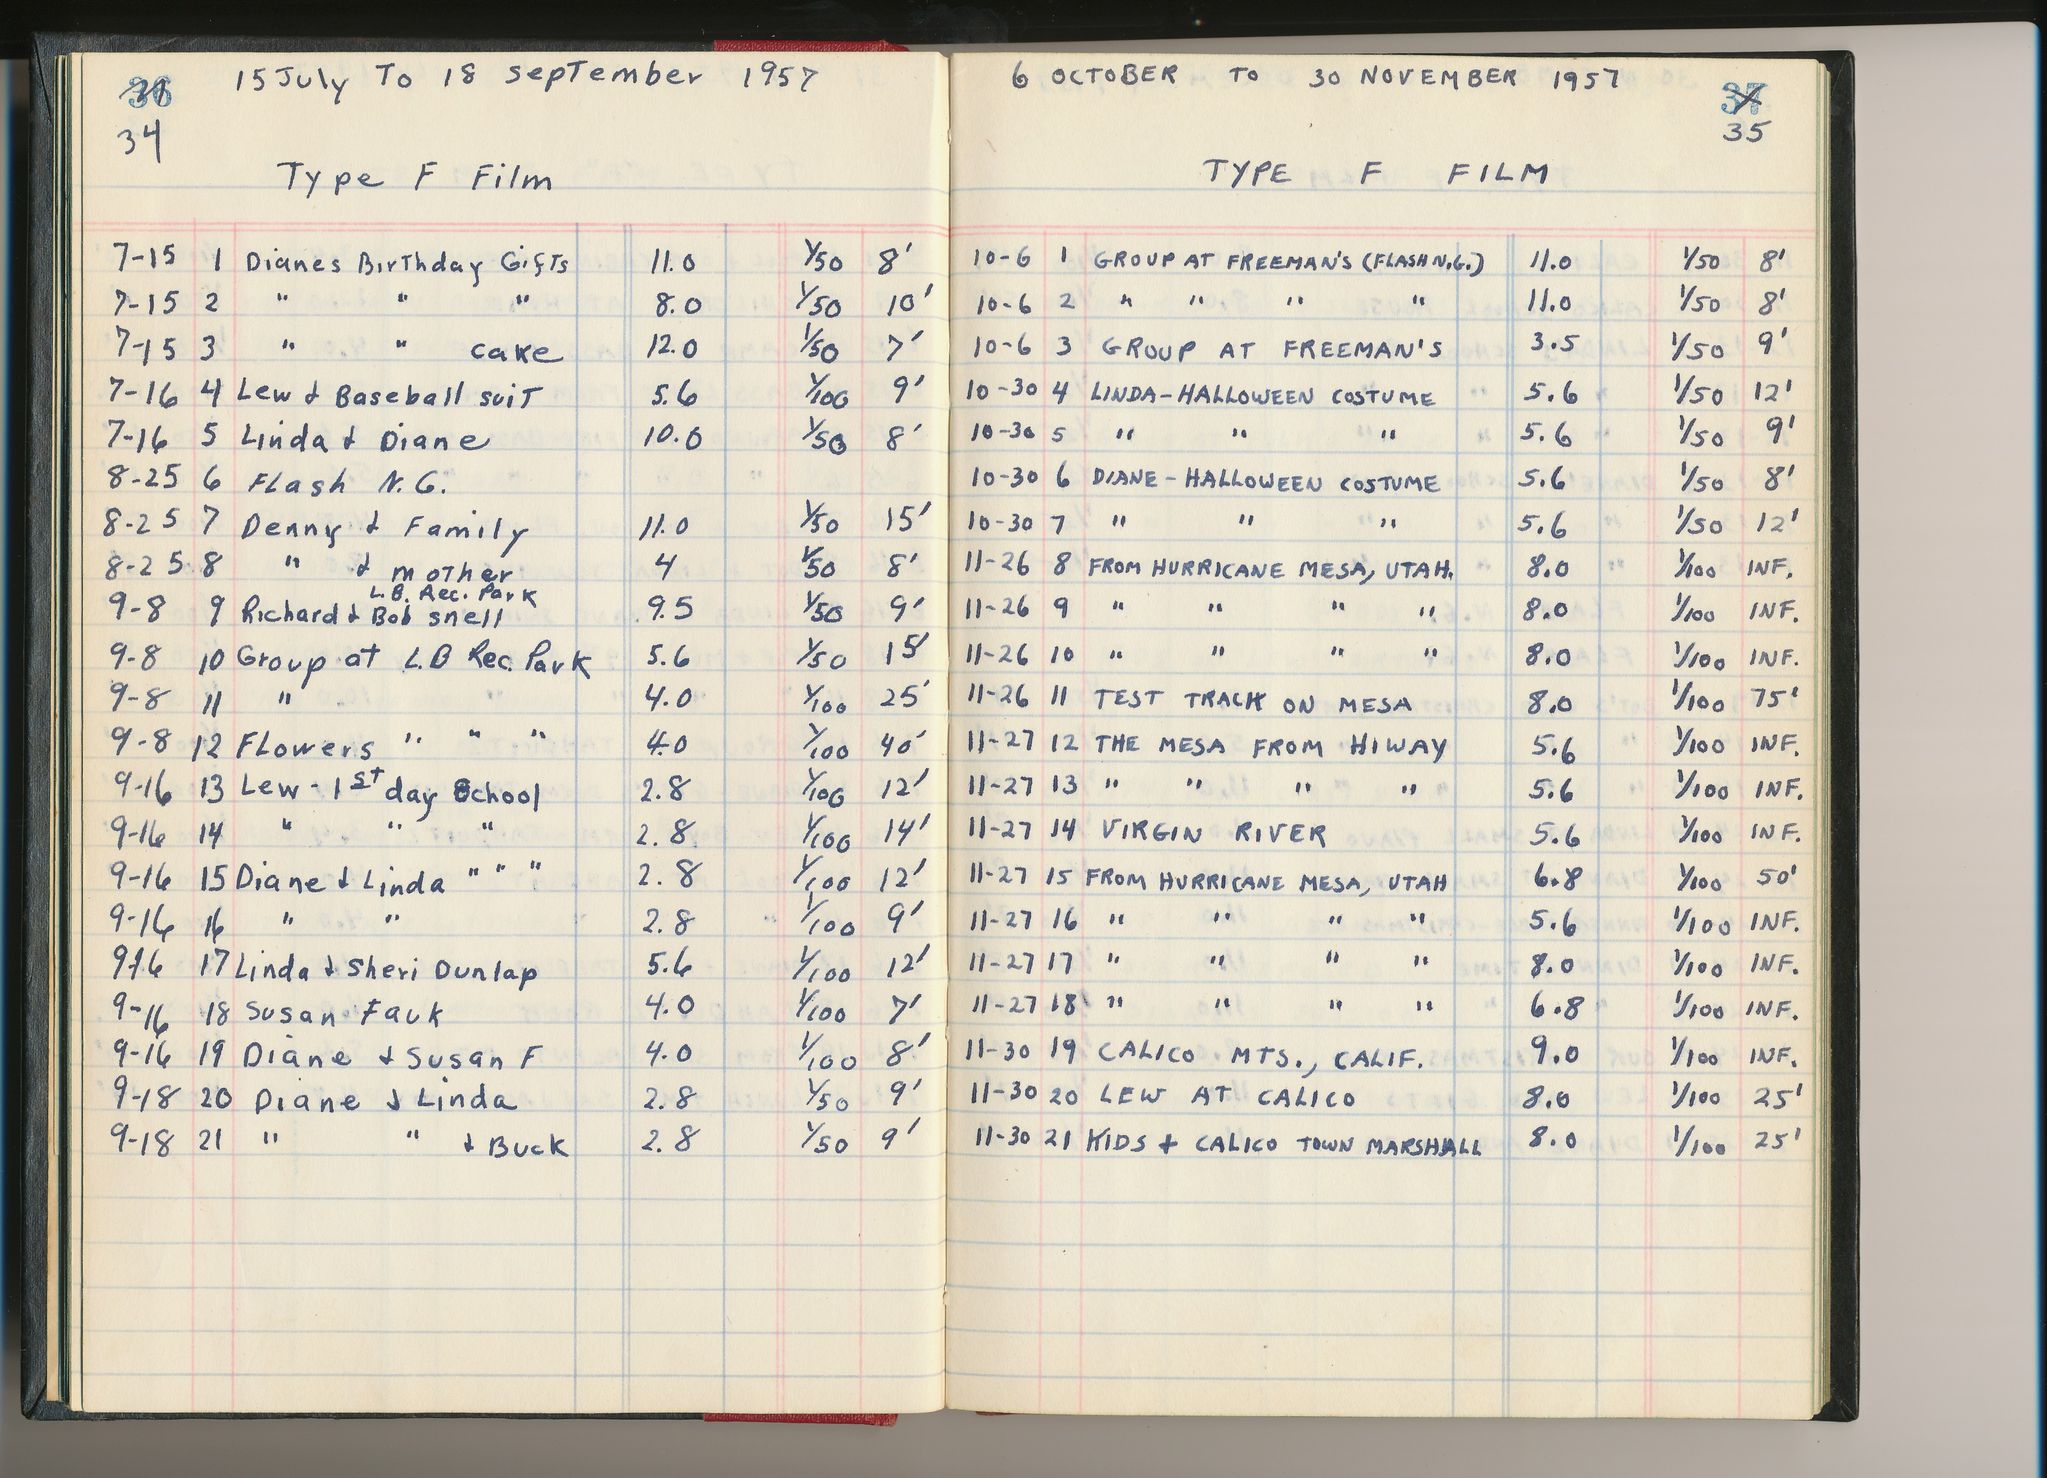 36
34
15 July To 18 September 1957
Type F Film
7-15 1 Dianes Birthday Gifts 11.0 1/50 8'
7-15 2 " " " 8.0 1/50 10'
7-15 3 " " cake 12.0 1/50 7'
7-16 4 Lew & Baseball suit 5.6 1/100 9'
7-16 5 Linda & Diane 10.0 1/50 8'
8-25 6 Flash N.G.
8-25 7 Denny & Family 11.0 1/50 15'
8-25 8 " & mother 4 1/50 8'
L.B. Rec. Park
9-8 9 Richard & Bob snell 9.5 1/50 9'
9-8 10 Group at L.B Rec. Park 5.6 1/50 15'
9-8 11 " 4.0 1/100 25'
9-8 12 Flowers " " " 4.0 1/100 40'
9-16 13 Lew - 1st day School 2.8 1/100 12'
9-16 14 " " " 2.8 1/100 14'
9-16 15 Diane & Linda " " " 2.8 1/100 12'
9-16 16 " " 2.8 1/100 9'
9-16 17 Linda & Sheri Dunlap 5.6 1/100 12'
9-16 18 Susan Fauk 4.0 1/100 7'
9-16 19 Diane & Susan F 4.0 1/100 8'
9-18 20 Diane & Linda 2.8 1/50 9'
9-18 21 " " & Buck 2.8 1/50 9'
6 OCTOBER TO 30 NOVEMBER 1957
37
35
TYPE F FILM
10-6 1 GROUP AT FREEMAN'S (FLASH N.G.) 11.0 1/50 8'
10-6 2 " " " " 11.0 1/50 8'
10-6 3 GROUP AT FREEMAN'S 3.5 1/50 9'
10-30 4 LINDA-HALLOWEEN COSTUME 5.6 1/50 12'
10-30 5 " " " 5.6 1/50 9'
10-30 6 DIANE-HALLOWEEN COSTUME 5.6 1/50 8'
10-30 7 " " " 5.6 1/50 12'
11-26 8 FROM HURRICANE MESA, UTAH. 8.0 1/100 INF.
11-26 9 " " " " 8.0 1/100 INF.
11-26 10 " " " " 8.0 1/100 INF.
11-26 11 TEST TRACK ON MESA 8.0 1/100 75'
11-27 12 THE MESA FROM HIWAY 5.6 1/100 INF.
11-27 13 " " " " 5.6 1/100 INF.
11-27 14 VIRGIN RIVER 5.6 1/100 INF.
11-27 15 FROM HURRICANE MESA, UTAH 6.8 1/100 50'
11-27 16 " " " " 5.6 1/100 INF.
11-27 17 " " " " 8.0 1/100 INF.
11-27 18 " " " " 6.8 1/100 INF.
11-30 19 CALICO MTS., CALIF. 9.0 1/100 INF.
11-30 20 LEW AT CALICO 8.0 1/100 25'
11-30 21 KIDS + CALICO TOWN MARSHALL 8.0 1/100 25'